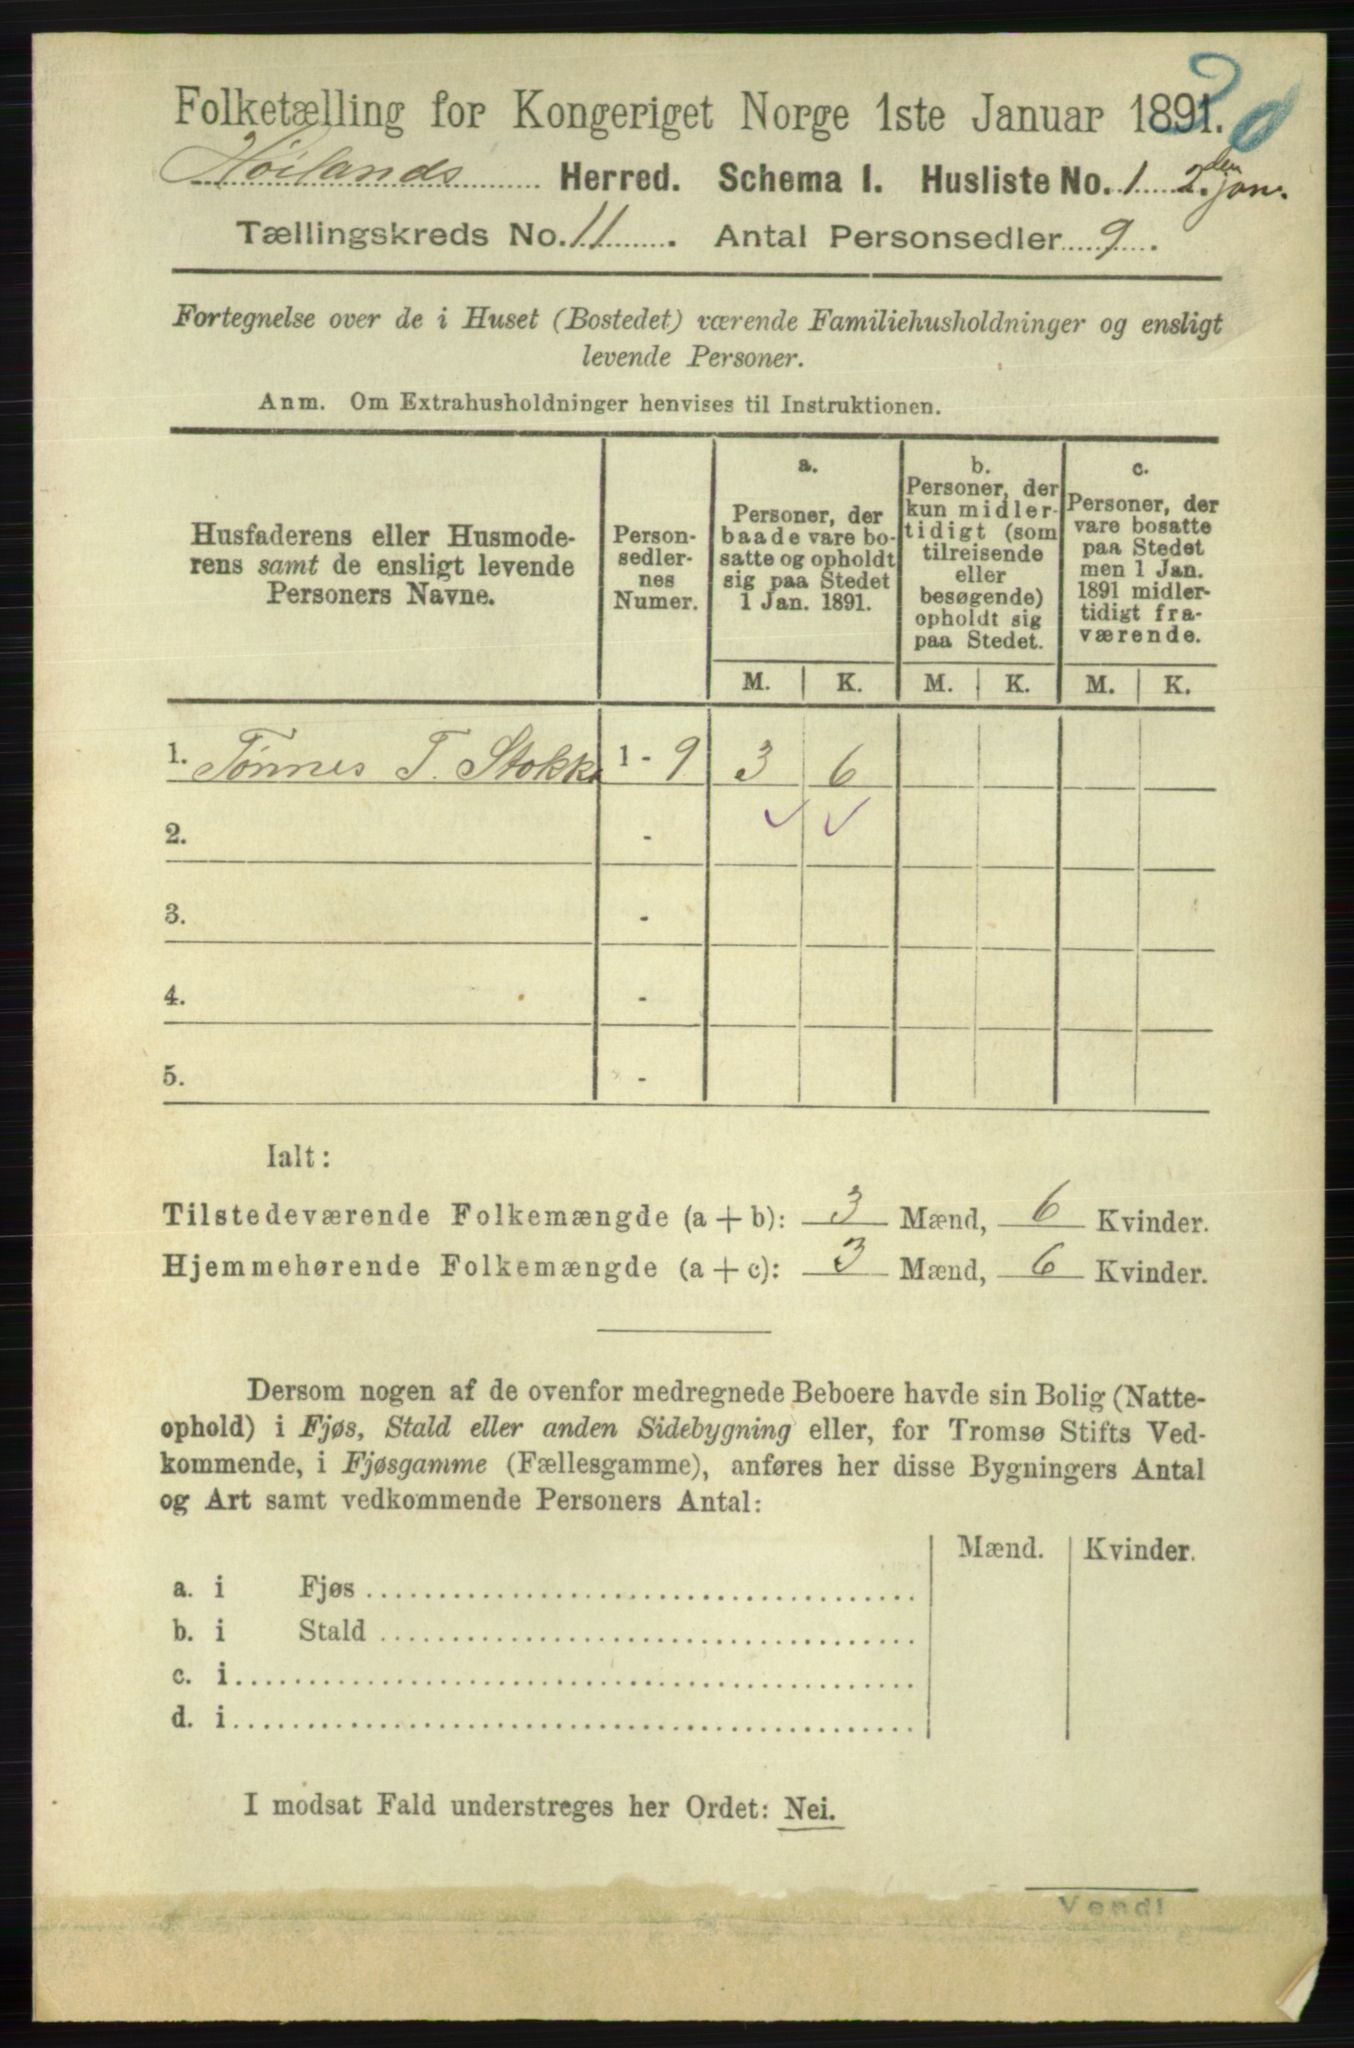 20
Folketælling for Kongeriget Norge 1ste Januar 1891.
Höilands Herred. Schema 1. Husliste No. 1 2den Jan.
Tællingskreds No. 11. Antal Personsedler 9.
Fortegnelse over de i Huset (Bostedet) værende Familiehusholdninger og ensligt
levende Personer.
Anm. Om Extrahusholdninger henvises til Instruktionen.
Husfaderens eller Husmode-
rens samt de ensligt levende
Personers Navne.
Person-
sedler-
nes
Numer.
a.
Personer, der
baade vare bo-
satte og opholdt
sig paa Stedet
1 Jan. 1891.
b.
Personer, der
kun midler-
tidigt (som
tilreisende
eller
besøgende)
opholdt sig
paa Stedet.
c.
Personer, der
vare bosatte
paa Stedet
men 1 Jan.
1891 midler-
tidigt fra-
værende.
M. K. M. K. M. K.
1. Tönnes T. Stokke 1 - 9 3 6
2. -
3. -
4. -
5. -
Ialt:
Tilstedeværende Folkemængde (a + b): 3 Mænd, 6 Kvinder.
Hjemmehørende Folkemængde (a + c): 3 Mænd, 6 Kvinder.
Dersom nogen af de ovenfor medregnede Beboere havde sin Bolig (Natte-
ophold) i Fjøs, Stald eller anden Sidebygning eller, for Tromsø Stifts Ved-
kommende, i Fjøsgamme (Fællesgamme), anføres her disse Bygningers Antal
og Art samt vedkommende Personers Antal:
Mænd. Kvinder.
a. i Fjøs
b. i Stald
c. i
d. i
I modsat Fald understreges her Ordet: Nei.
Vend!